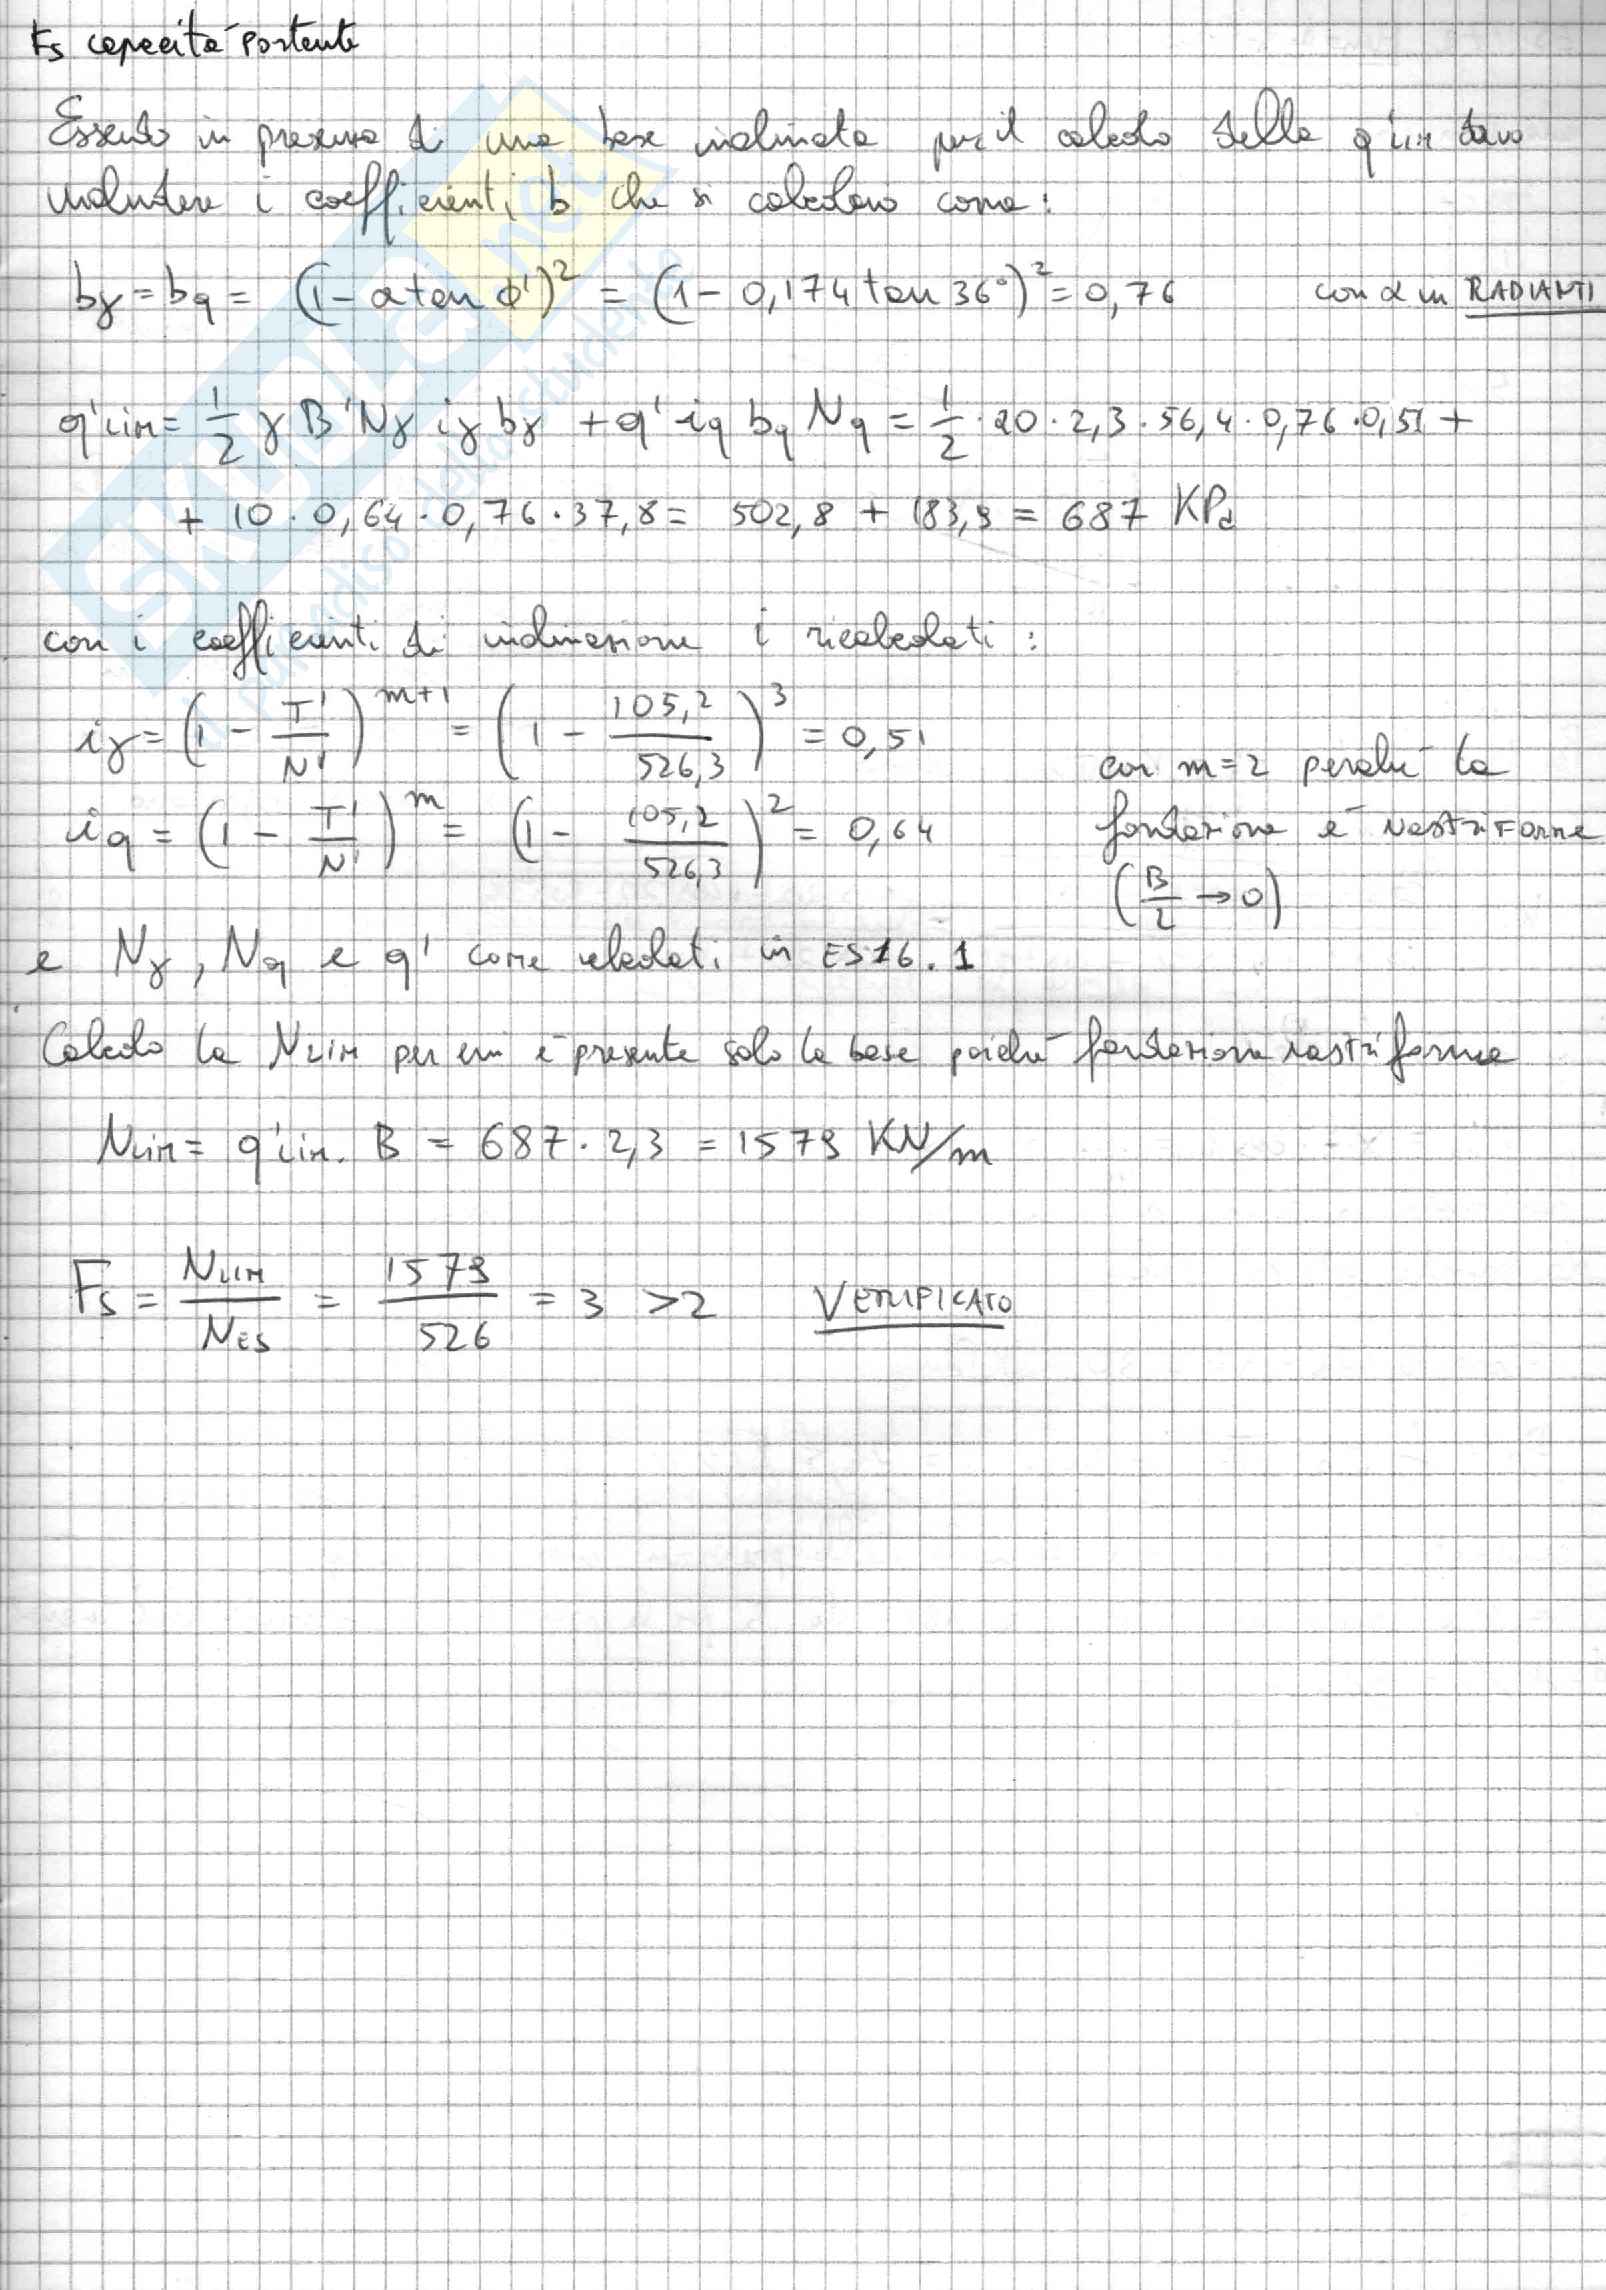 Fs capacità portante
Essendo in presenza di una base inclinata per il calcolo della q'LIM devo
includere i coefficienti b che si calcolano come:
bγ = bq = (1 - α tan φ')² = (1 - 0,174 tan 36°)² = 0,76 con α in RADIANTI
q'LIM = 1/2 γ B' Nγ iγ bγ + q' iq bq Nq = 1/2 · 20 · 2,3 · 56,4 · 0,76 · 0,51 +
+ 10 · 0,64 · 0,76 · 37,8 = 502,8 + 183,9 = 687 KPa
con i coefficienti di inclinazione i ricalcolati :
iγ = (1 - T'/N')^(m+1) = (1 - 105,2/526,3)³ = 0,51
con m=2 perché la
iq = (1 - T'/N')^m = (1 - 105,2/526,3)² = 0,64
fondazione è nastriforme
(B/L → 0)
e Nγ, Nq e q' come calcolati in ES16.1
Calcolo la NLIM per cui è presente solo la base poiché fondazione nastriforme
NLIM = q'LIM. B = 687 · 2,3 = 1579 KN/m
Fs = NLIM/NES = 1579/526 = 3 >2 VERIFICATO
SKUOLA.net
il paradiso dello studente